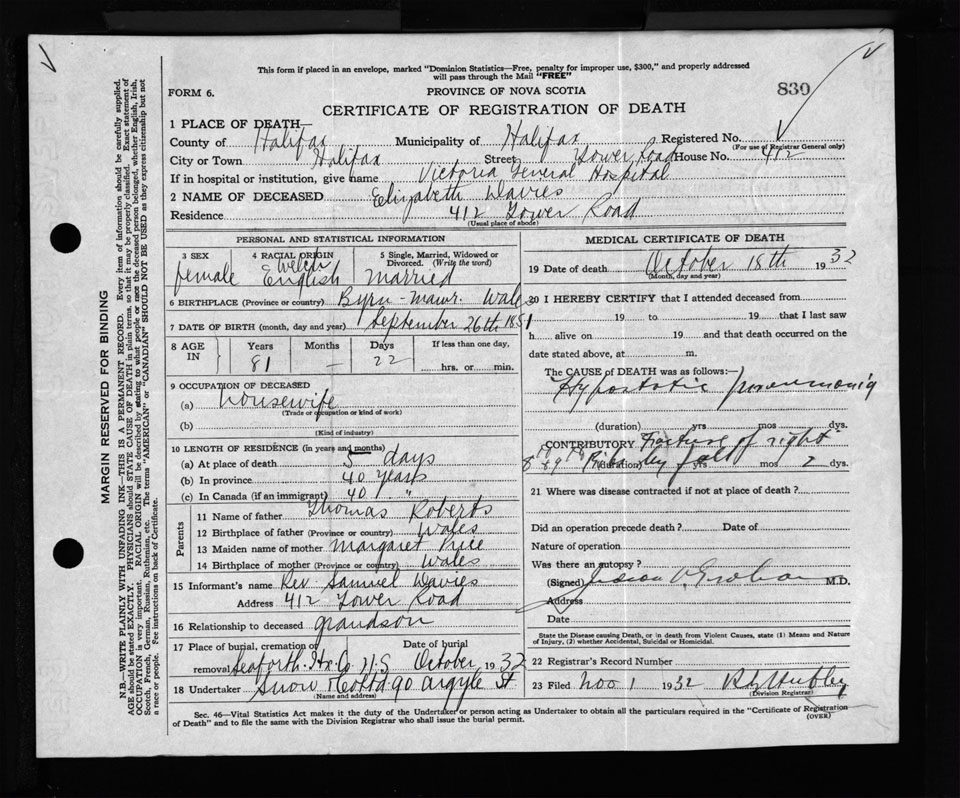 This form if placed in an envelope, marked "Dominion Statistics—Free, penalty for improper use, $300," and properly addressed
will pass through the Mail "FREE"
FORM 6.
PROVINCE OF NOVA SCOTIA
830
CERTIFICATE OF REGISTRATION OF DEATH
1 PLACE OF DEATH—
County of Halifax Municipality of Halifax Registered No.
(For use of Registrar General only)
City or Town Halifax Street Tower Road House No. 412
If in hospital or institution, give name Victoria General Hospital
2 NAME OF DECEASED Elizabeth Davies
Residence 412 Tower Road
(Usual place of abode)
PERSONAL AND STATISTICAL INFORMATION
3 SEX
female
4 RACIAL ORIGIN
Welch
English
5 Single, Married, Widowed or
Divorced. (Write the word)
Married
6 BIRTHPLACE (Province or country) Byrn-Mawr. Wales
7 DATE OF BIRTH (month, day and year) September 26th 1851
8 AGE
IN
Years
81
Months
—
Days
22
If less than one day,
hrs. or min.
9 OCCUPATION OF DECEASED
(a) Housewife
(Trade or occupation or kind of work)
(b)
(Kind of industry)
10 LENGTH OF RESIDENCE (in years and months)
(a) At place of death 5 days
(b) In province 40 years
(c) In Canada (if an immigrant) 40 "
Parents
11 Name of father Thomas Roberts
12 Birthplace of father (Province or country) Wales
13 Maiden name of mother Margaret Price
14 Birthplace of mother (Province or country) Wales
15 Informant's name Rev. Samuel Davies
Address 412 Tower Road
16 Relationship to deceased grandson
17 Place of burial, cremation or
removal Seaforth. Hx. Co. N.S
Date of burial
October, 1932
18 Undertaker Snow & Co Ltd 90 Argyle St
(Name and address)
MEDICAL CERTIFICATE OF DEATH
19 Date of death October 18th 1932
(Month, day and year)
20 I HEREBY CERTIFY that I attended deceased from
19 to 19 that I last saw
h alive on 19 and that death occurred on the
date stated above, at m.
The CAUSE OF DEATH was as follows:—
Hypostatic pneumonia
(duration) yrs mos dys.
CONTRIBUTORY Fracture of right
8th & 9th Ribs by fall
(duration) yrs mos 2 dys.
21 Where was disease contracted if not at place of death?
Did an operation precede death? Date of
Nature of operation
Was there an autopsy?
(Signed) M.D.
Address
Date
State the Disease causing Death, or in death from Violent Causes, state (1) Means and Nature
of Injury, (2) whether Accidental, Suicidal or Homicidal.
22 Registrar's Record Number
23 Filed Nov 1 1932
Division Registrar
Sec. 46—Vital Statistics Act makes it the duty of the Undertaker or person acting as Undertaker to obtain all the particulars required in the "Certificate of Registration
of Death" and to file the same with the Division Registrar who shall issue the burial permit.
(OVER)
MARGIN RESERVED FOR BINDING
N.B.—WRITE PLAINLY WITH UNFADING INK—THIS IS A PERMANENT RECORD. Every item of information should be carefully supplied.
AGE should be stated EXACTLY. PHYSICIANS should STATE CAUSE OF DEATH in plain terms, so that it may be properly classified. Exact statement of
OCCUPATION is very important. RACIAL ORIGIN will be described by stating to what people or race the deceased person belonged, whether English, Irish,
Scotch, French, German, Russian, Ruthenian, etc. The terms "AMERICAN" or "CANADIAN" SHOULD NOT BE USED as they express citizenship but not
a race or people. See instructions on back of Certificate.